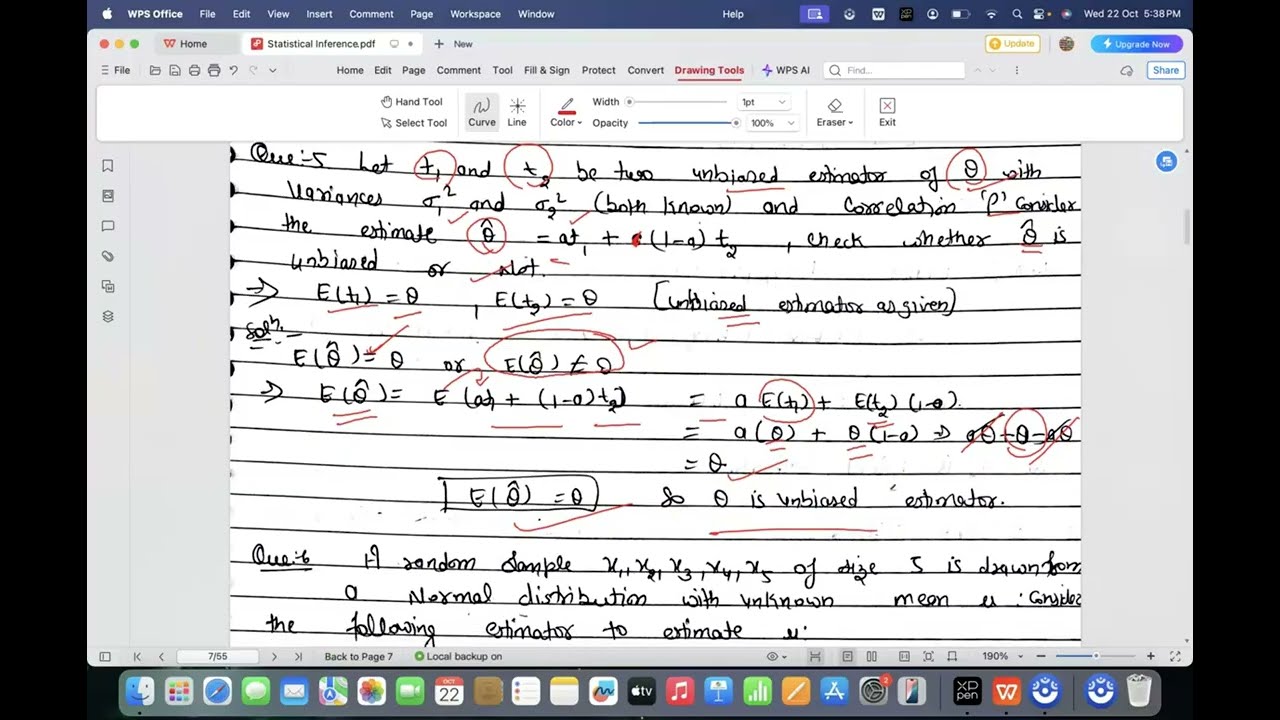 WPS Office File Edit View Insert Comment Page Workspace Window Help Wed 22 Oct 5:38 PM
Home Statistical Inference.pdf New Update Upgrade Now
File Home Edit Page Comment Tool Fill & Sign Protect Convert Drawing Tools WPS AI Find... Share
Hand Tool Select Tool Curve Line Color Width 1pt Opacity 100% Eraser Exit
Que:-5 Let t₁ and t₂ be two unbiased estimator of θ with
Variances σ₁² and σ₂² (both known) and correlation 'ρ' Consider
the estimate θ̂ = at₁ + (1-a) t₂ , check whether θ̂ is
unbiased or Not.
⇒ E(t₁) = θ , E(t₂) = θ [unbiased estimator as given)
Solⁿ.
E(θ̂) = θ or E(θ̂) ≠ θ
⇒ E(θ̂) = E (at₁ + (1-a)t₂) = a E(t₁) + E(t₂) (1-a).
= a(θ) + θ(1-a) ⇒ aθ + θ - aθ
= θ
E(θ̂) = θ So θ is unbiased estimator.
Que:-6 A random sample x₁, x₂, x₃, x₄, x₅ of size 5 is drawn from
a Normal distribution with unknown mean μ : Consider
the following estimator to estimate μ:
7/55 Back to Page 7 Local backup on 190%
OCT 22 tv 2 XP PEN